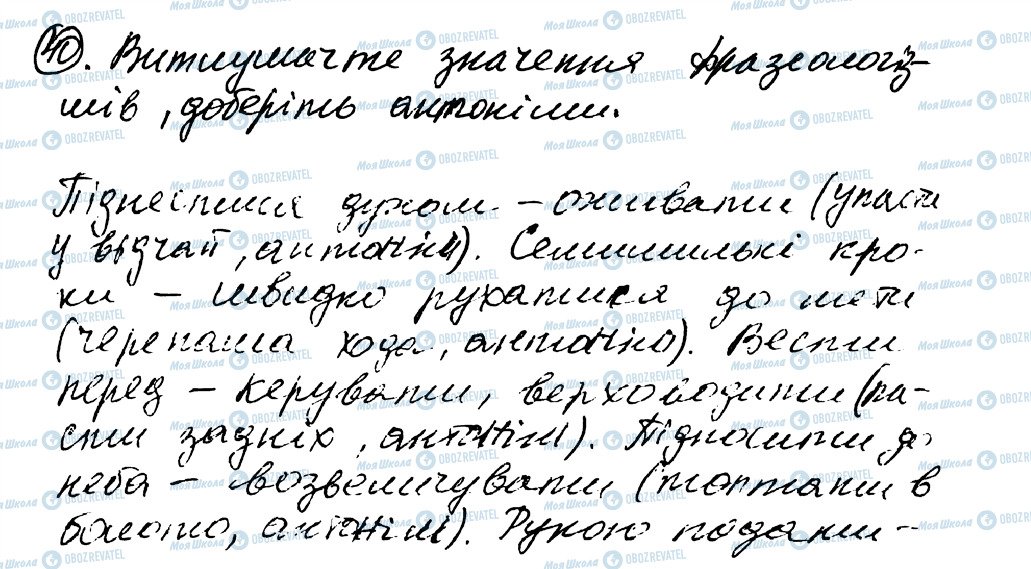 40. Витлумачте значення фразеологіз-
мів, доберіть антоніми.
Піднестися духом – оживати (упасти
у відчай, антонім). Семимильні кро-
ки – швидко рухатися до мети
(черепаша хода, антонім). Вести
перед – керувати, верховодити (па-
сти задніх, антонім). Підносити до
неба – возвеличувати (топтати в
болото, антонім). Рукою подати –